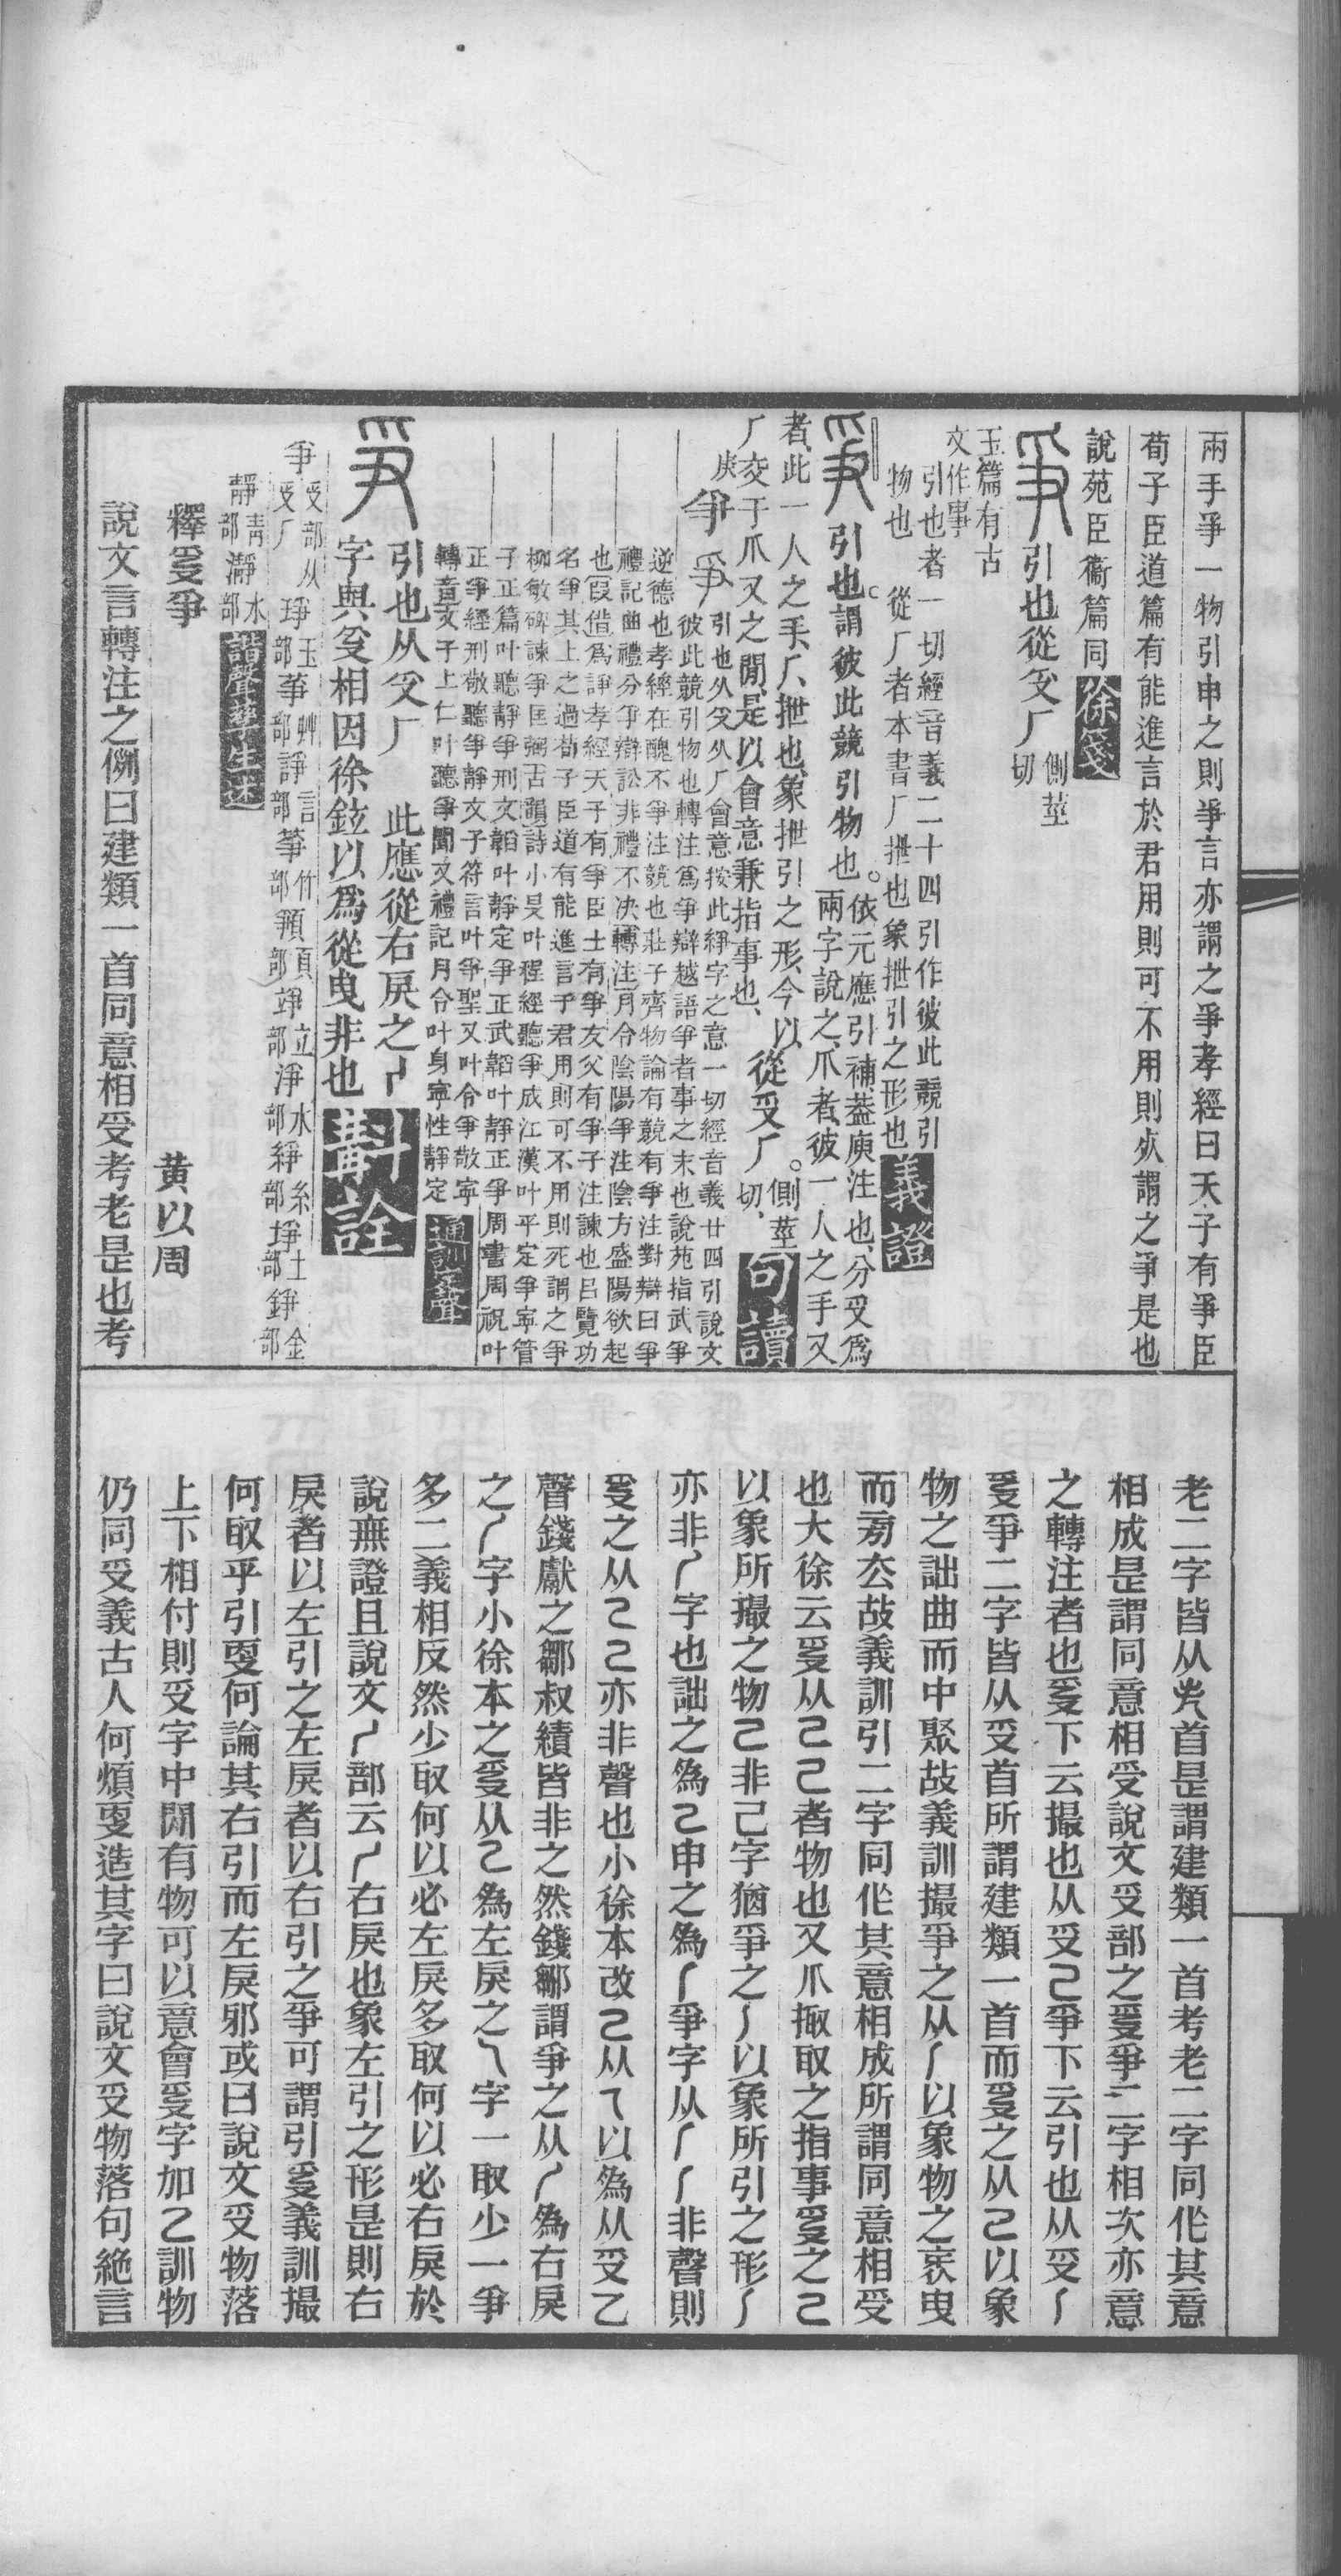 兩手爭一物引申之則爭言亦謂之爭孝經曰天子有爭臣
荀子臣道篇有能進言於君用則可不用則死謂之爭是也
說苑臣術篇同徐箋
引也從𠬪厂側莖切
玉篇有古
文作𤔔
引也者一切經音義二十四引作彼此競引
物也 從厂者本書厂抴也象抴引之形也義證
引也謂彼此競引物也。依元應引補蓋庾注也分𠬪爲
兩字說之爪者彼一人之手又
者此一人之手厂抴也象抴引之形今以從𠬪厂。側莖切
厂交于爪又之閒是以會意兼指事也句讀
爭 引也从𠬪从厂會意按此䋫字之意一切經音義廿四引說文
彼此競引物也轉注爲爭辯越語爭者事之末也說苑指武爭
逆德也孝經在醜不爭注競也莊子齊物論有競有爭注對辯曰爭
禮記曲禮分爭辯訟非禮不決轉注月令陰陽爭注陰方盛陽欲起
也叚借爲諍孝經天子有爭臣士有爭友父有爭子注諫也呂覽功
名爭其上之過荀子臣道有能進言于君用則可不用則死謂之爭
柳敏碑諫爭匡弼古韻詩小旻叶程經聽爭成江漢叶平定爭寧管
子正篇叶聽靜爭刑文韜叶靜定爭正武韜叶靜正爭周書周祝叶
正爭經刑敬聽爭靜文子符言叶爭聖又叶令爭敬寧
轉音文子上仁叶聽爭聞又禮記月令叶身寧性靜定通訓定聲
引也从𠬪厂 此應從右戾之丿
字與𠬪相因徐鉉以爲從曳非也斠詮
爭𠬪部从𠬪厂 琤玉部 䓬艸部 諍言部 箏竹部 䫆頁部 竫立部 淨水部 絣糸部 埩土部 錚金部
靜青部 瀞水部 諧聲補生述
釋𤔌爭 黃以周
說文言轉注之例曰建類一首同意相受考老是也考
老二字皆从耂首是謂建類一首考老二字同作其意
相成是謂同意相受說文𠬪部之𤔌爭二字相次亦意
之轉注者也𤔌下云撮也从𠬪己爭下云引也从𠬪丿
𤔌爭二字皆从𠬪首所謂建類一首而𤔌之从己以象
物之詘曲而中聚故義訓撮爭之从丿以象物之衺曳
而㫄㕣故義訓引二字同作其意相成所謂同意相受
也大徐云𤔌从己己者物也又爪掫取之指事𤔌之己
以象所撮之物己非己字猶爭之丿以象所引之形丿
亦非丿字也詘之爲己申之爲丿爭字从丿丿非聲則
𤔌之从己己亦非聲也小徐本改己从乁以爲从𠬪乙
聲錢獻之鄒叔績皆非之然錢鄒謂爭之从丿爲右戾
之丿字小徐本之𤔌从己爲左戾之乀字一取少一爭
多二義相反然少取何以必左戾多取何以必右戾於
說無證且說文丿部云丿右戾也象左引之形是則右
戾者以左引之左戾者以右引之爭可謂引𤔌義訓撮
何取乎引㪅何論其右引而左戾邪或曰說文𠬪物落
上下相付則𠬪字中閒有物可以意會𤔌字加乙訓物
仍同𠬪義古人何煩㪅造其字曰說文𠬪物落句絶言